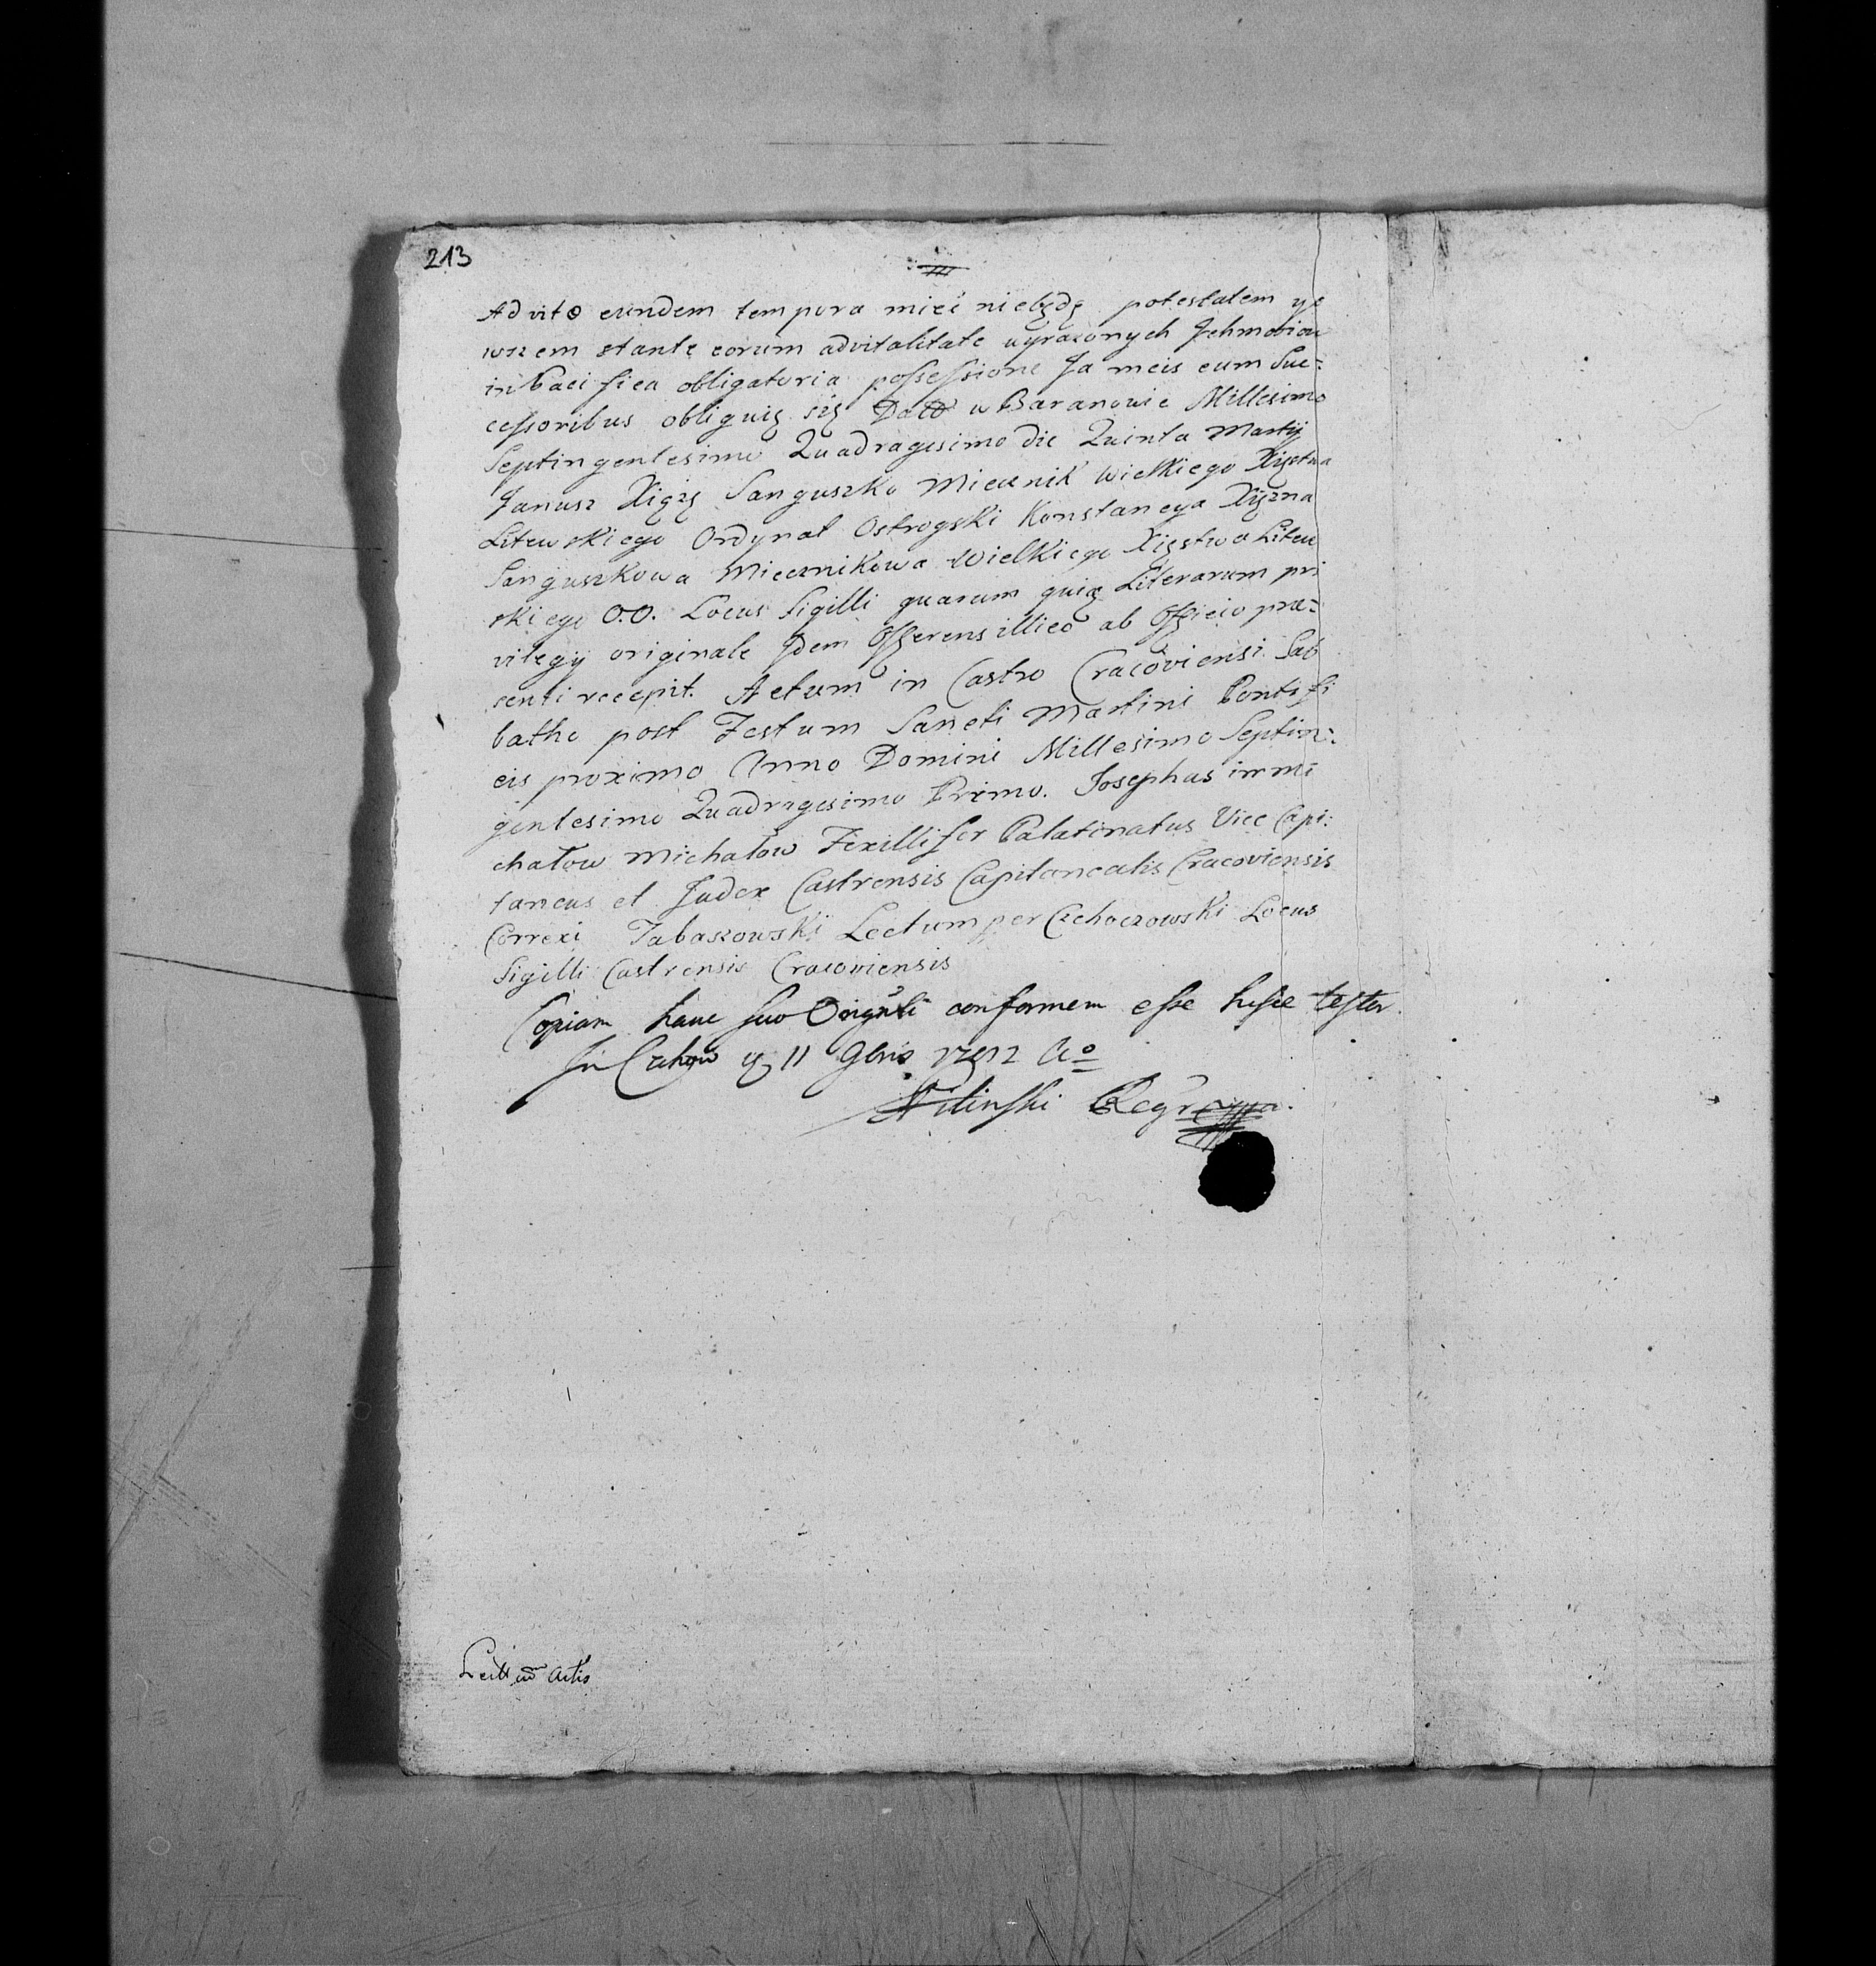 213
Ad vitæ eundem tempora mieć niebędę potestatem ye
wszem stante eorum advitalitate wyrazonych Jchmościow
in Pacifica obligatoria possessione Ja meis cum Suc:
cessoribus obliguię się Datt w Baranowie Millesimo
Septingentesimo Quadragesimo die Quinta Martij
Janusz Xiąże Sanguszko Miecznik Wielkiego Xięstwa
Litewskiego Ordynat Ostrogski Konstancya Xiężna
Sanguszkowa Miecznikowa Wielkiego Xięstwa Litew
skiego O.O. Locus Sigilli quarum quię Literarum pri
vilegij originale Jdem Offerens illico ab Officio præ:
senti recepit. Actum in Castro Cracoviensi Sab
batho post Festum Sancti Martini Pontifi
cis proximo Anno Domini Millesimo Septin:
gentesimo Quadragesimo Primo. Josephus in mi
chałow Michałow Fexillifer Palatinatus Vice Capi:
taneus et Judex Castrensis Capitanealis Cracoviensis
Correxi Tabaszowski Lectum per Czchoczowski Locus
Sigilli Castrensis Cracoviensis
Copiam hanc suo Orignli conformem esse hisce testor.
In 11 Ao
Regt
Lectum Actis